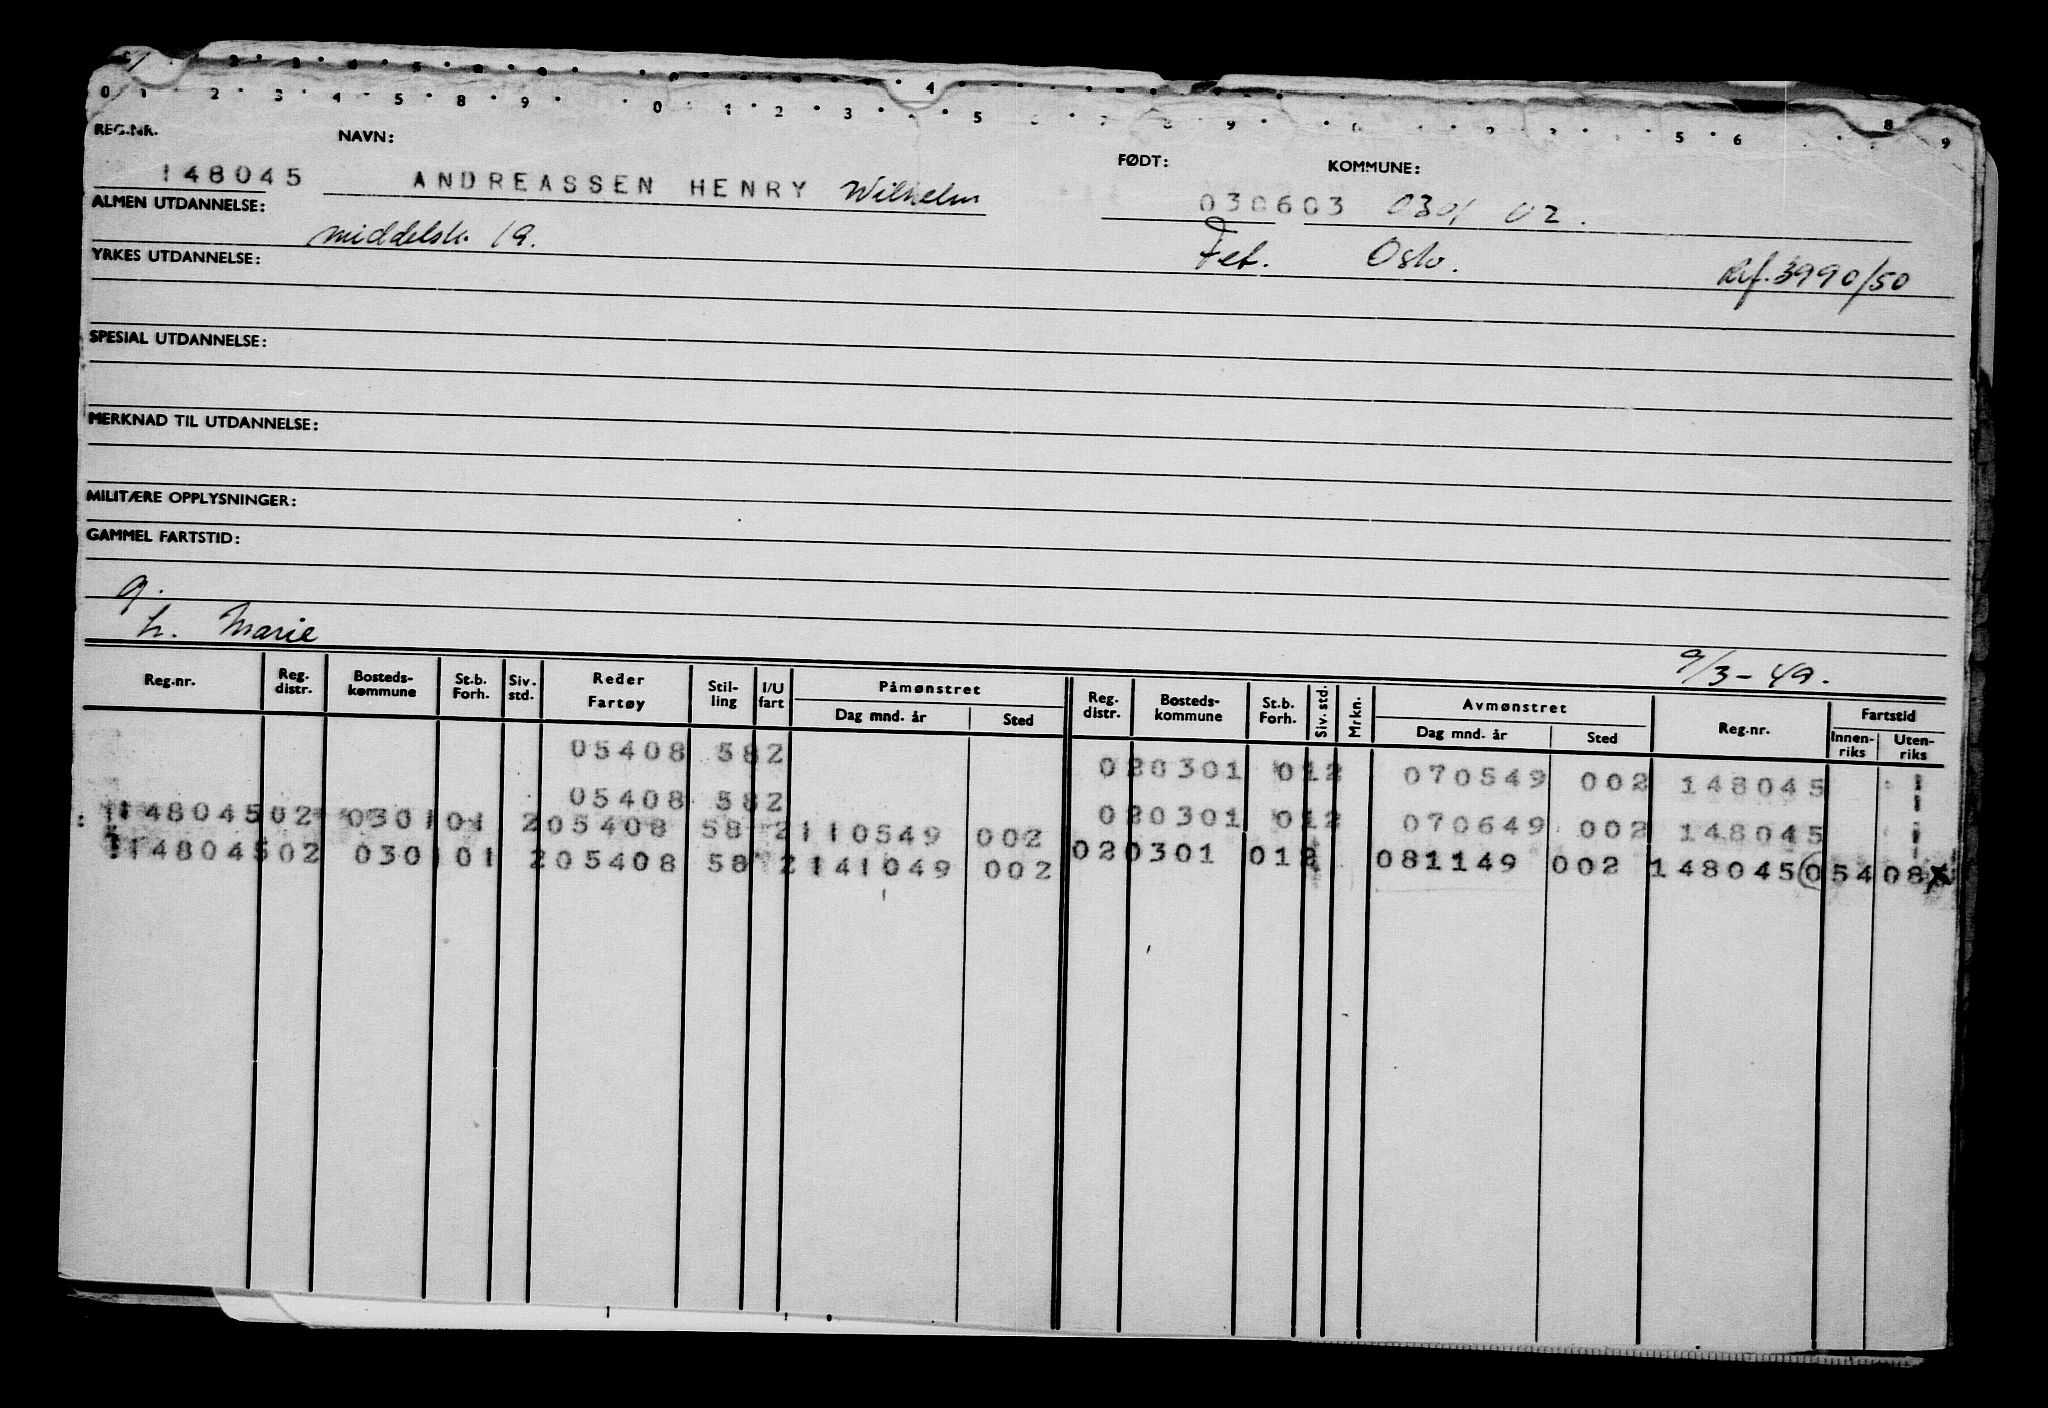 0 1 2 3 4 5 8 9 0 1 2 3 5 7 8 9 0 2 3 5 6 8 9
REG.NR. NAVN: FØDT: KOMMUNE:
148045 ANDREASSEN HENRY Wilhelm 030603 0301 02.
ALMEN UTDANNELSE: middelsk. 19. Fet. Oslo.
YRKES UTDANNELSE: Ref. 3990/50
SPESIAL UTDANNELSE:
MERKNAD TIL UTDANNELSE:
MILITÆRE OPPLYSNINGER:
GAMMEL FARTSTID:
g.
h. Marie
9/3-49.
Reg.nr. Reg. distr. Bosteds-kommune St.b. Forh. Siv. std. Reder Fartøy Stil-ling I/U fart Påmønstret Dag mnd. år Sted Reg. distr. Bosteds-kommune St.b. Forh. Siv. std. Mrkn. Avmønstret Dag mnd. år Sted Reg.nr. Fartstid Innen-riks Uten-riks
05408 582 020301 012 070549 002 148045
05408 582 020301 012 070649 002 148045
148045 02 0301 01 2 05408 58 2 110549 002
148045 02 0301 01 2 05408 58 2 141049 002 02 0301 012 081149 002 148045 05408